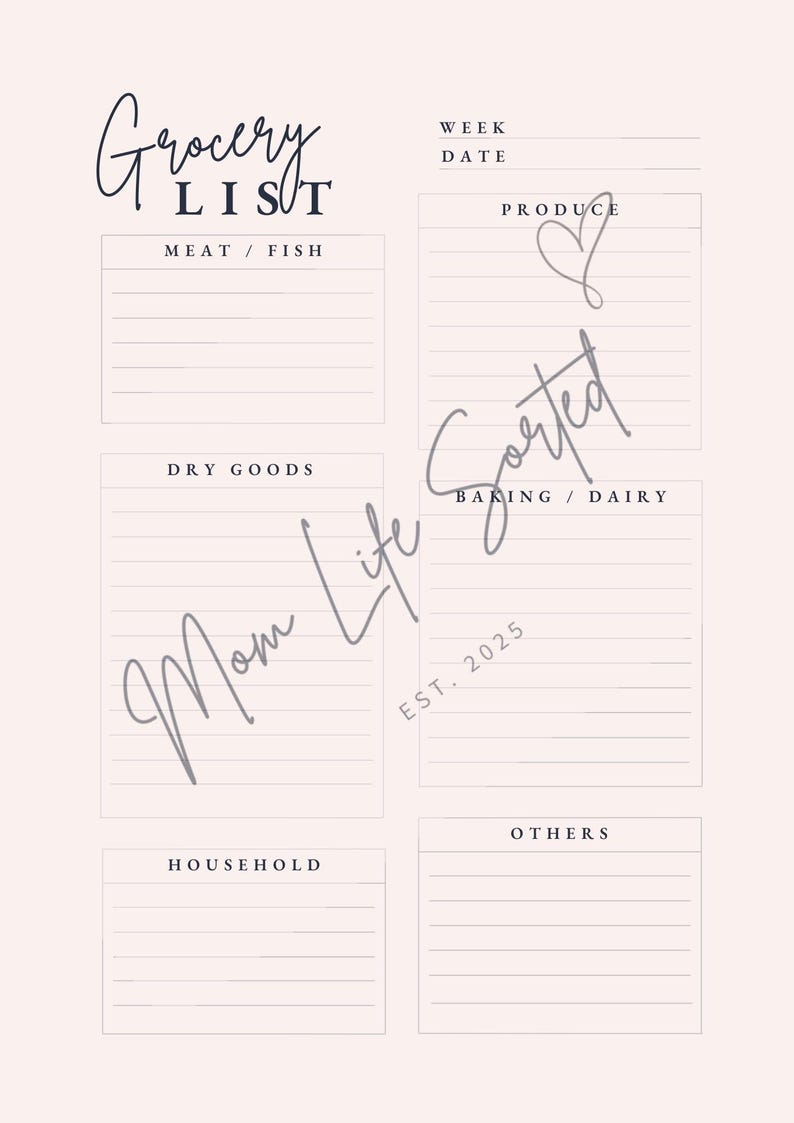 Grocery
LIST
WEEK
DATE
MEAT / FISH
PRODUCE
DRY GOODS
BAKING / DAIRY
HOUSEHOLD
OTHERS
Mom Life Sorted
EST. 2025